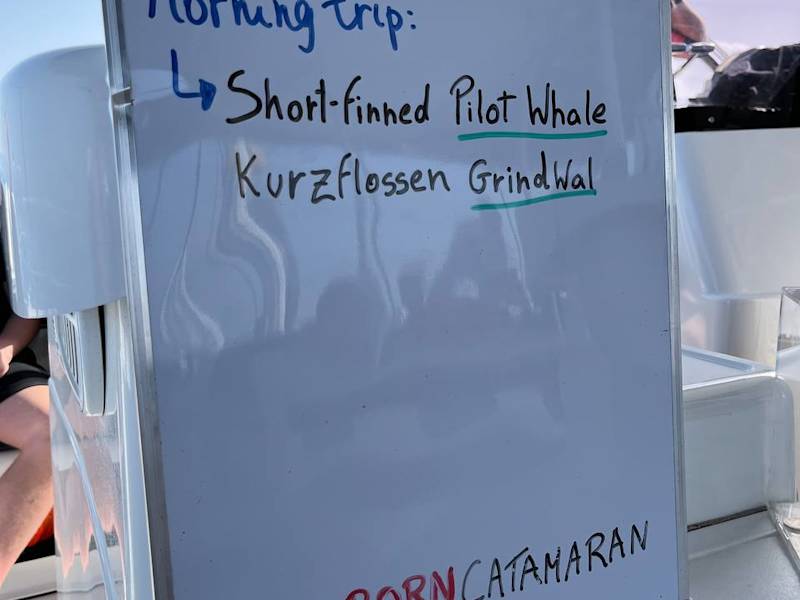 Morning trip:
Short-finned Pilot Whale
Kurzflossen Grindwal
BORN CATAMARAN